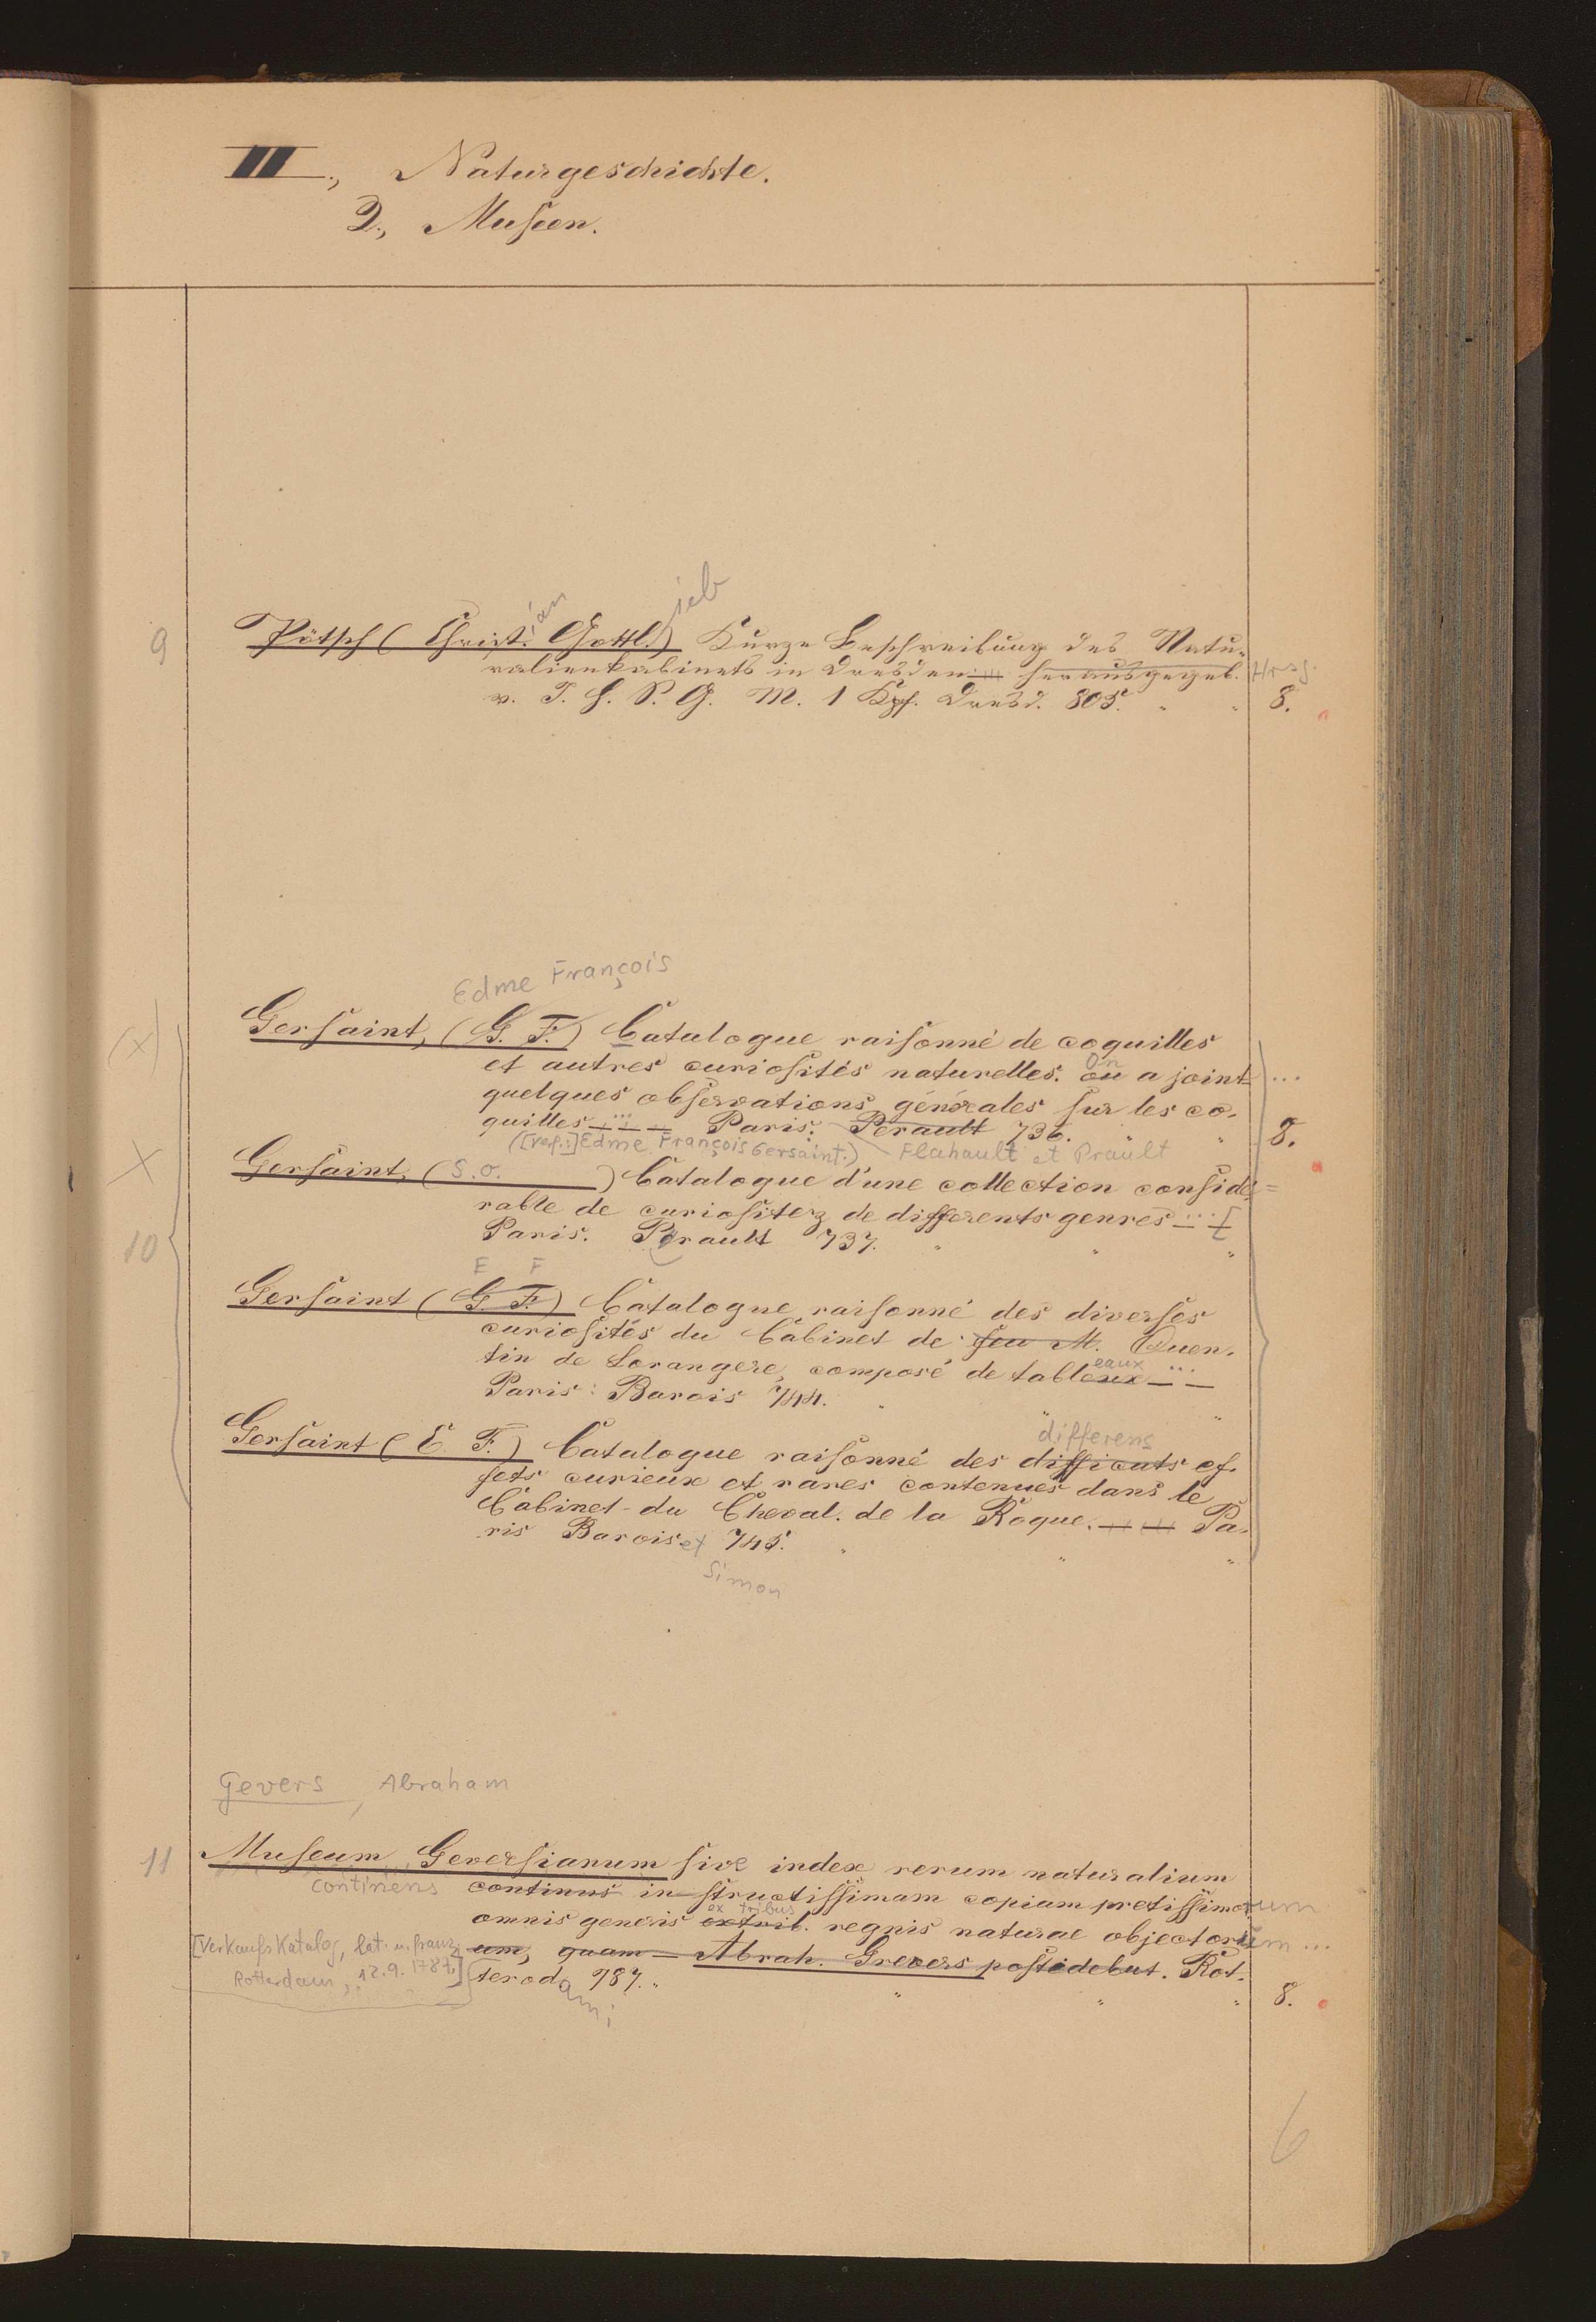 III., Naturgeschichte.
D., Museen.
ian ieb
9 Pötsch (Christ. Gottl.) Kurze Beschreibung des Natu-
ralienkabinets in Dresden herausgegeb. Hrsg.
v. J. H. S. G. M. 1 Kpf. Dresd. 805. " " 8.
Edme François
(x) Gersaint, (G. F.) Catalogue raisonné de coquilles
et autres curiosités naturelles. On ou a joint ...
quelques observations générales sur les co-
quilles ... Paris: Perault 736. " " 8.
([Verf.:] Edme François Gersaint.) Flahault et Prault
X Gersaint, (s. o.) Catalogue d'une collection considé=
rable de curiositez de differents genres ... [
10 Paris. Prault 737. " " "
E F
Gersaint (G. F.) Catalogue raisonné des diverses
curiosités du Cabinet de feu M. Quen-
tin de Lorangere, composé de tableaux ...
Paris: Barois 744. " " "
differens
Gersaint (E. F.) Catalogue raisonné des difficuts ef-
fets curieux et rares contenues dans le
Cabinet du Cheval. de la Roque. Pa-
ris Barois et 745. " " "
Simon
Gevers, Abraham
11 Museum Geversianum sive index rerum naturalium
continens continus in structissimam copiam pretissimorum
ex tribus
omnis generis extrib. regnis naturae objectorum ...
[Verkaufskatalog, lat. u. franz. um, quam Abrah. Grevers postidebut. Rot-
Rotterdam, 12.9.1787.] terodami 787. " " " " 8.
6